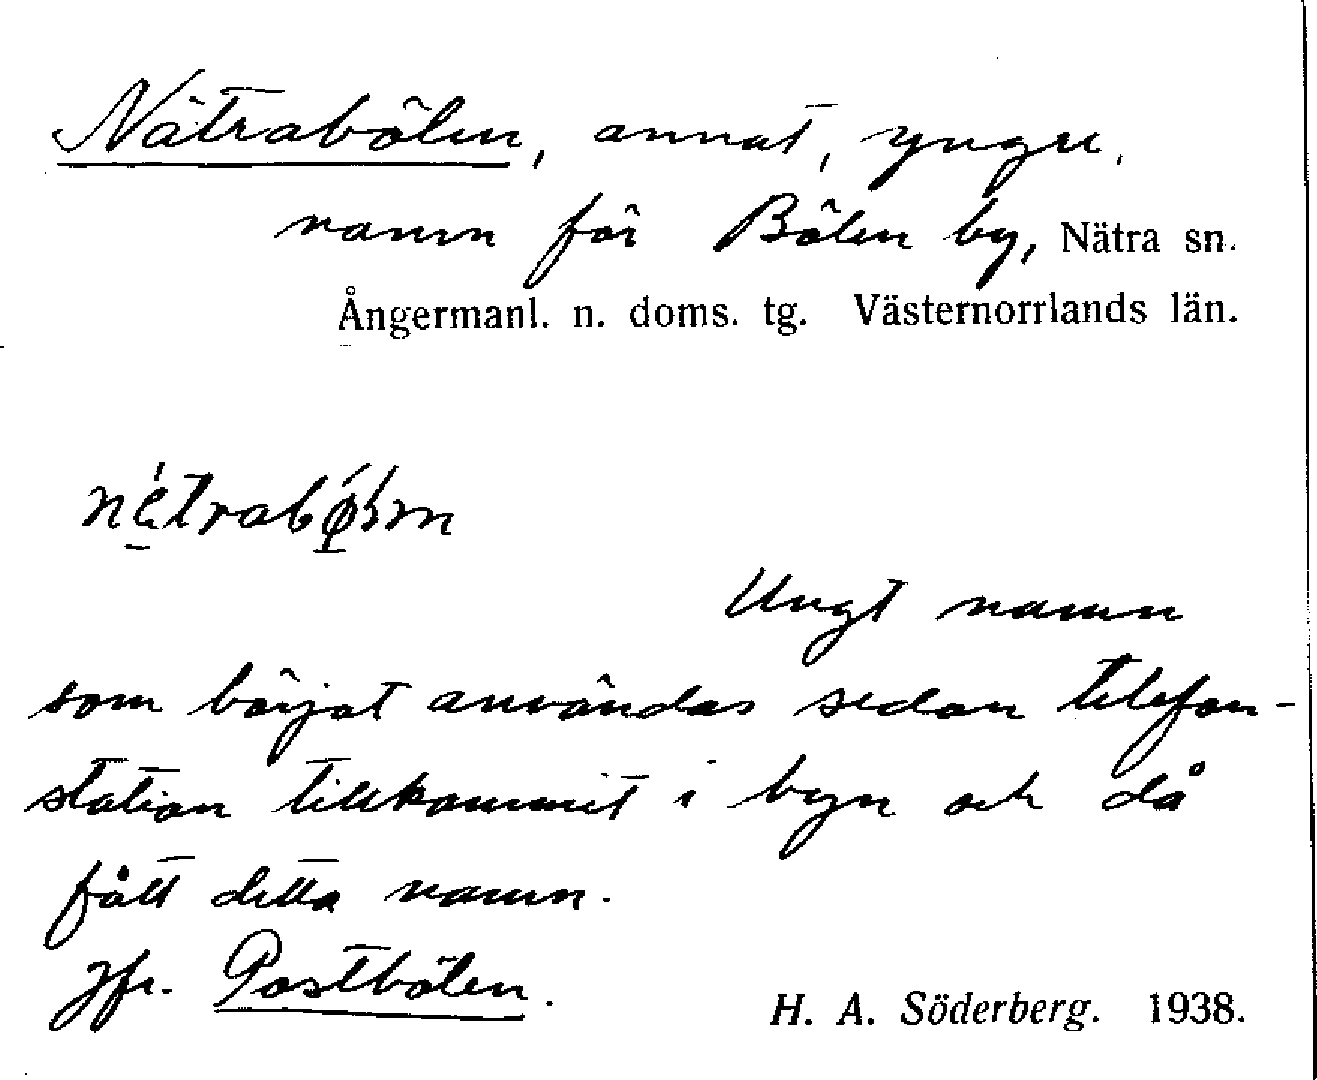 Nätrabölen, annat, yngre,
namn för Bölen by, Nätra sn.
Ångermanl. n. doms. tg. Västernorrlands län.
Ungt namn
som börjat användas sedan telefon-
station tillkommit i byn och då
fått detta namn.
Jfr. Postbölen.
H. A. Söderberg. 1938.